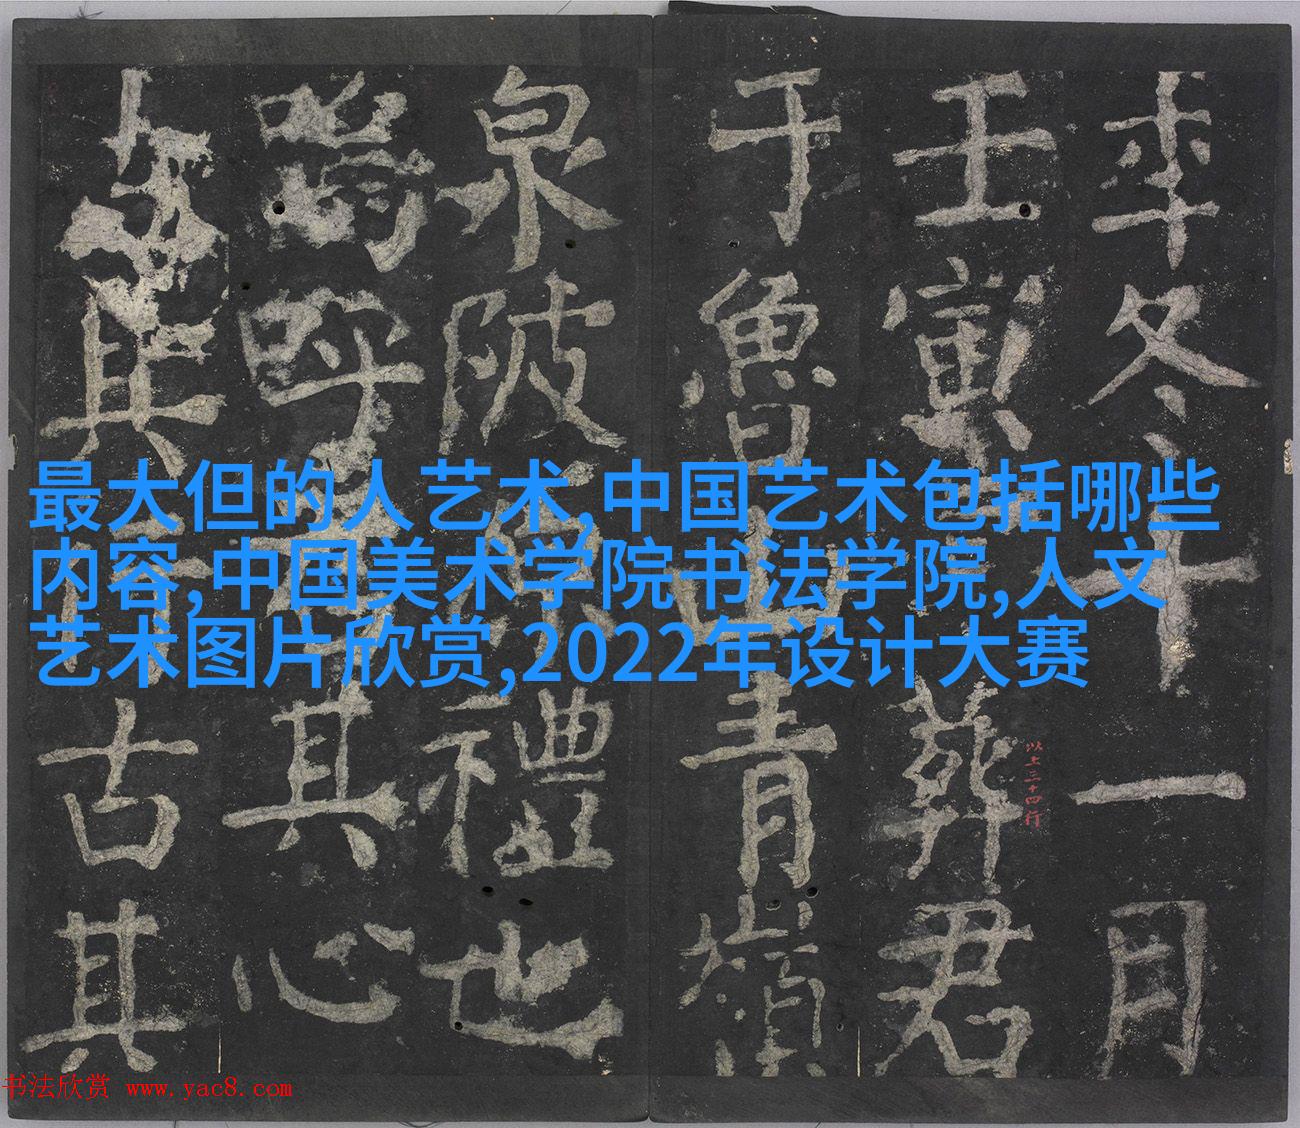 年冬十一月
壬寅葬君
以上三十四行
于魯山青嶺
泉陂禮也
嗚呼其心
其古其
最大但的人艺术,中国艺术包括哪些
内容,中国美术学院书法学院,人文
艺术图片欣赏,2022年设计大赛
书法欣赏 www.yac8.com